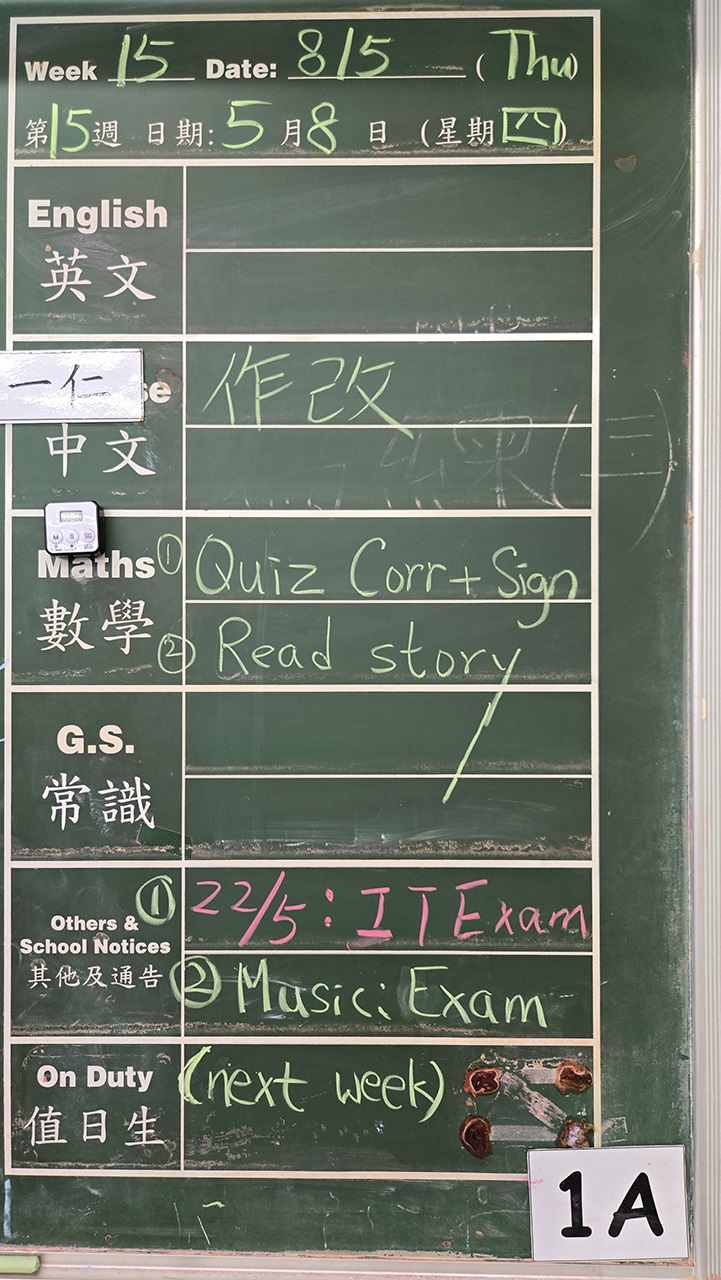 Week 15 Date: 8/5 (Thu)
第15週 日期: 5月8日 (星期四)
English
英文
一仁
se
作改
中文
Maths ① Quiz Corr + Sign
數學 ② Read story
G.S. /
常識
Others &
School Notices
其他及通告
① 22/5: IT Exam
② Music: Exam
On Duty (next week)
值日生
1A